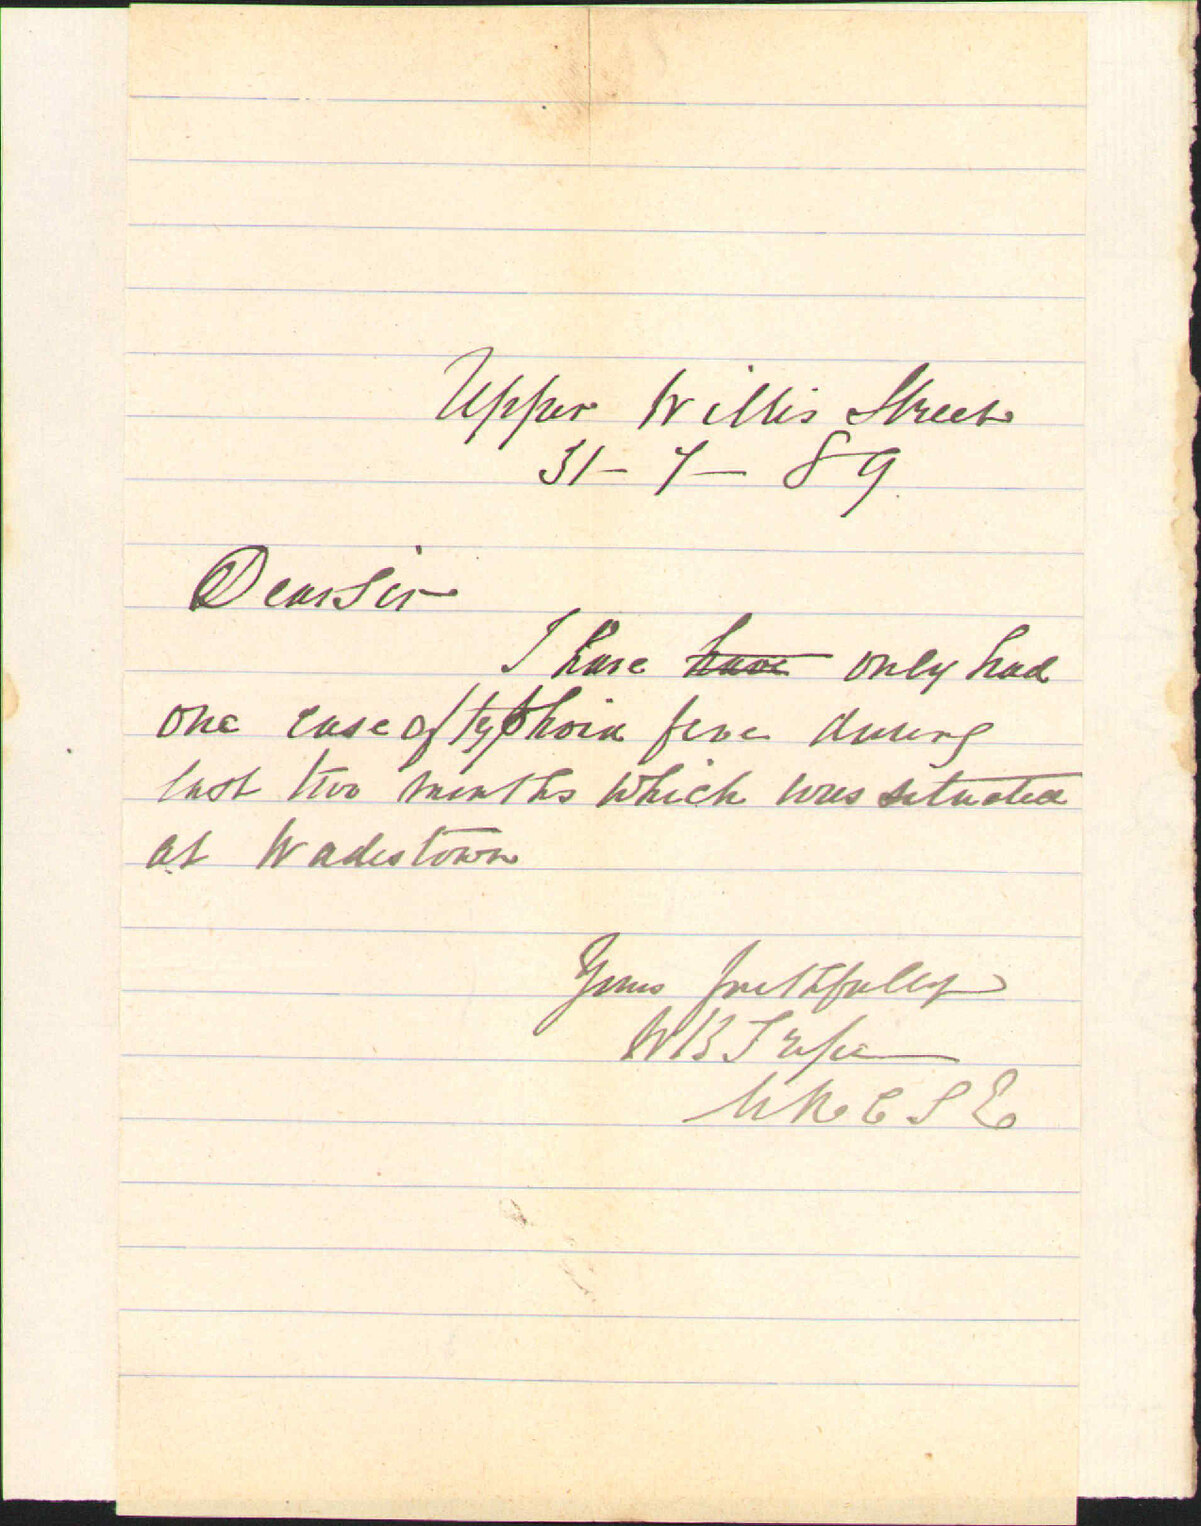 Upper Willis Street
31 - 7 - 89
Dear Sir
I have have only had
one case of typhoid fever during
last two months which was situated
at Wadestown
Yours faithfully
W B Tripe
M R C S E